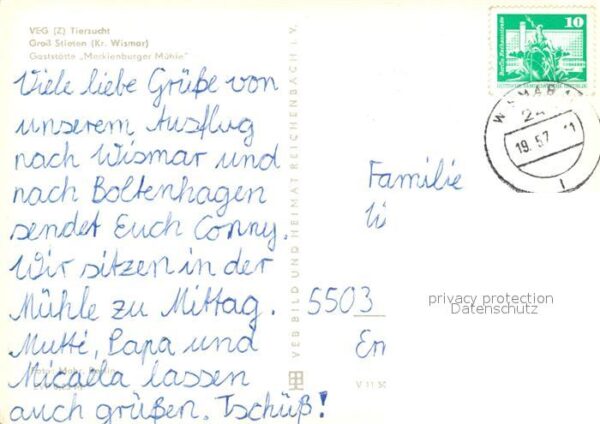 VEG (Z) Tierzucht
Groß Stieten (Kr. Wismar)
Gaststätte „Mecklenburger Mühle"
Viele liebe Grüße von
unserem Ausflug
nach Wismar und
nach Boltenhagen
sendet Euch Conny.
Wir sitzen in der
Mühle zu Mittag.
Mutti, Papa und
Micaela lassen
auch grüßen. Tschüß!
VEB BILD UND HEIMAT REICHENBACH i. V.
10
WISMAR 1
24
19.5.7
11
1
Familie
5503
privacy protection
Datenschutz
En
V 11 50